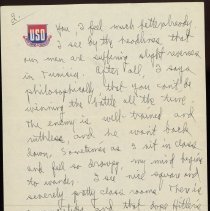 2.
USO
You. I feel much better already.
I see by the headlines that
our men are suffering slight reverses
in Tunisia. After all, I say
philosophically that you can't be
winning the battle all the time.
The enemy is well-trained and
ruthless and he won't back
down. Sometimes as I sit in class
and feel so droopy, my mind begins
to wander. I see nice square and
serenely pretty class rooms. There is
and that does Hitler's